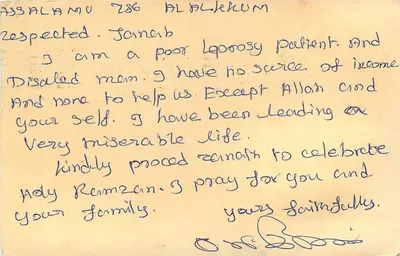 ASSALAMU 786 ALAIKKUM
Respected. Janab
I am a poor Leprosy Patient. And
Disaled man. I have no surce of income
And none to help us Except Allah and
your self. I have been leading a
very miserable life.
Kindly proced zamath to celebrate
Holy Ramzan. I pray for you and
your family.
yours faithfully.